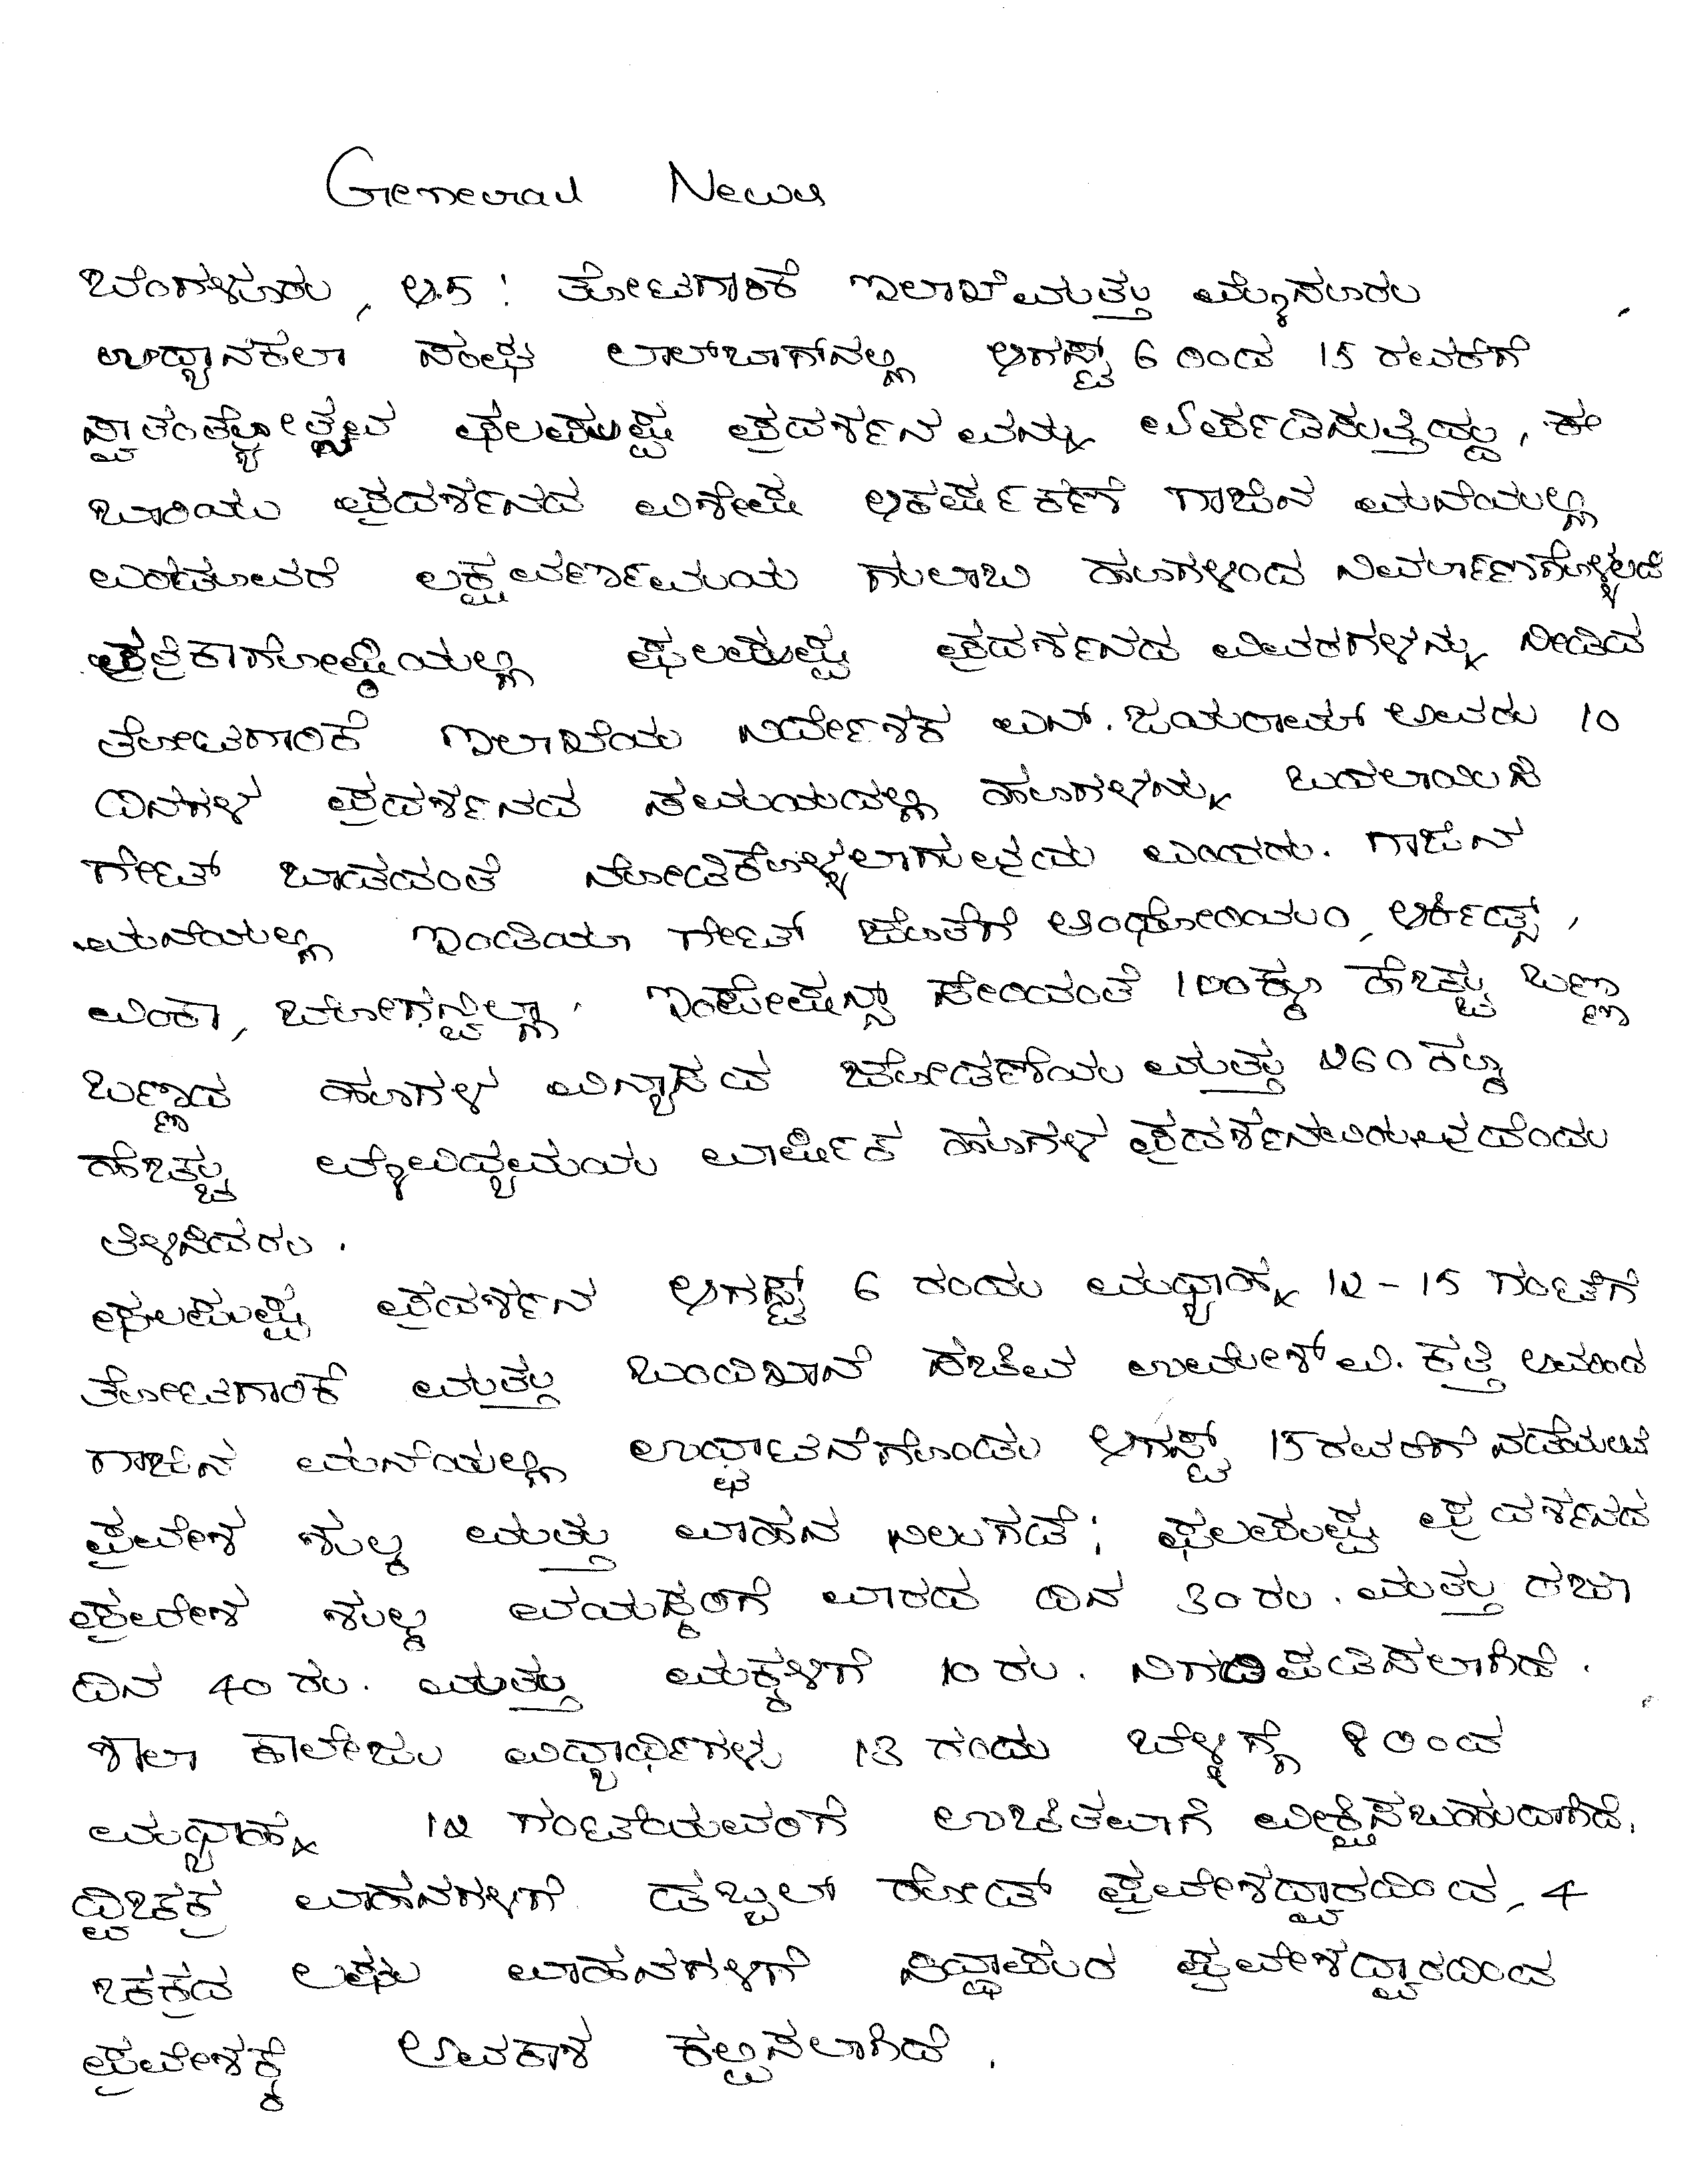 General News
ಬೆಂಗಳೂರು, ಆ.5: ತೋಟಗಾರಿಕೆ ಇಲಾಖೆ ಮತ್ತು ಮೈಸೂರು
ಉದ್ಯಾನಕಲಾ ಸಂಘ ಲಾಲ್‌ಬಾಗ್‌ನಲ್ಲಿ ಆಗಸ್ಟ್ 6 ರಿಂದ 15 ರವರೆಗೆ
ಸ್ವಾತಂತ್ರ್ಯೋತ್ಸವ ಫಲಪುಷ್ಪ ಪ್ರದರ್ಶನವನ್ನು ಏರ್ಪಡಿಸುತ್ತಿದ್ದು, ಈ
ಬಾರಿಯ ಪ್ರದರ್ಶನದ ವಿಶೇಷ ಆಕರ್ಷಕಣೆ ಗಾಜಿನ ಮನೆಯಲ್ಲಿ
ಎರಡೂವರೆ ಲಕ್ಷ ವರ್ಣಮಯ ಗುಲಾಬಿ ಹೂಗಳಿಂದ ನಿರ್ಮಾಣಗೊಳ್ಳಲಿದೆ
ಪತ್ರಿಕಾಗೋಷ್ಠಿಯಲ್ಲಿ ಫಲಪುಷ್ಪ ಪ್ರದರ್ಶನದ ವಿವರಗಳನ್ನು ನೀಡಿದ
ತೋಟಗಾರಿಕೆ ಇಲಾಖೆಯ ನಿರ್ದೇಶಕ ಎನ್. ಜಯರಾಮ್ ಅವರು 10
ದಿನಗಳ ಪ್ರದರ್ಶನದ ಸಮಯದಲ್ಲಿ ಹೂಗಳನ್ನು ಬದಲಾಯಿಸಿ
ಗೇಟ್ ಬಾಡದಂತೆ ನೋಡಿಕೊಳ್ಳಲಾಗುವುದು ಎಂದರು. ಗಾಜಿನ
ಮನೆಯಲ್ಲಿ ಇಂಡಿಯಾ ಗೇಟ್ ಜೊತೆಗೆ ಆಂಥೋರಿಯಂ, ಆರ್ಕಿಡ್ಸ್,
ವಿಂಕಾ, ಬೋಗನ್ವಿಲ್ಲಾ, ಇಂಪೇಷನ್ಸ್ ಸೇರಿದಂತೆ 100ಕ್ಕೂ ಹೆಚ್ಚು ಬಣ್ಣ
ಬಣ್ಣದ ಹೂಗಳ ವಿನ್ಯಾಸದ ಜೋಡಣೆಯ ಮತ್ತು 260ಕ್ಕೂ
ಹೆಚ್ಚು ವೈವಿಧ್ಯಮಯ ವಾರ್ಷಿಕ ಹೂಗಳ ಪ್ರದರ್ಶನವಿರುವುದೆಂದು
ತಿಳಿಸಿದರು.
ಫಲಪುಷ್ಪ ಪ್ರದರ್ಶನ ಆಗಸ್ಟ್ 6 ರಂದು ಮಧ್ಯಾಹ್ನ 12-15 ಗಂಟೆಗೆ
ತೋಟಗಾರಿಕೆ ಮತ್ತು ಬಂದಿಖಾನೆ ಸಚಿವ ಉಮೇಶ್ ವಿ. ಕತ್ತಿ ಅವರಿಂದ
ಗಾಜಿನ ಮನೆಯಲ್ಲಿ ಉದ್ಘಾಟನೆಗೊಂಡು ಆಗಸ್ಟ್ 15ರವರೆಗೆ ನಡೆಯಲಿದೆ
ಪ್ರವೇಶ ಶುಲ್ಕ ಮತ್ತು ವಾಹನ ನಿಲುಗಡೆ; ಫಲಪುಷ್ಪ ಪ್ರದರ್ಶನದ
ಪ್ರವೇಶ ಶುಲ್ಕ ವಯಸ್ಕರಿಗೆ ವಾರದ ದಿನ 30 ರು. ಮತ್ತು ರಜಾ
ದಿನ 40 ರು. ಮತ್ತು ಮಕ್ಕಳಿಗೆ 10 ರು. ನಿಗದಿಪಡಿಸಲಾಗಿದೆ.
ಶಾಲಾ ಕಾಲೇಜು ವಿದ್ಯಾರ್ಥಿಗಳು 13 ರಂದು ಬೆಳ್ಳಿಗ್ಗೆ 8 ರಿಂದ
ಮಧ್ಯಾಹ್ನ 12 ಗಂಟೆಯವರಿಗೆ ಉಚಿತವಾಗಿ ವೀಕ್ಷಿಸಬಹುದಾಗಿದೆ.
ದ್ವಿಚಕ್ರ ವಾಹನಗಳಿಗೆ ಡಬ್ಬಲ್ ರೋಡ್ ಪ್ರವೇಶದ್ವಾರದಿಂದ, 4
ಚಕ್ರದ ಲಘು ವಾಹನಗಳಿಗೆ ಸಿದ್ಧಾಪುರ ಪ್ರವೇಶದ್ವಾರದಿಂದ
ಪ್ರವೇಶಕ್ಕೆ ಅವಕಾಶ ಕಲ್ಪಿಸಲಾಗಿದೆ.